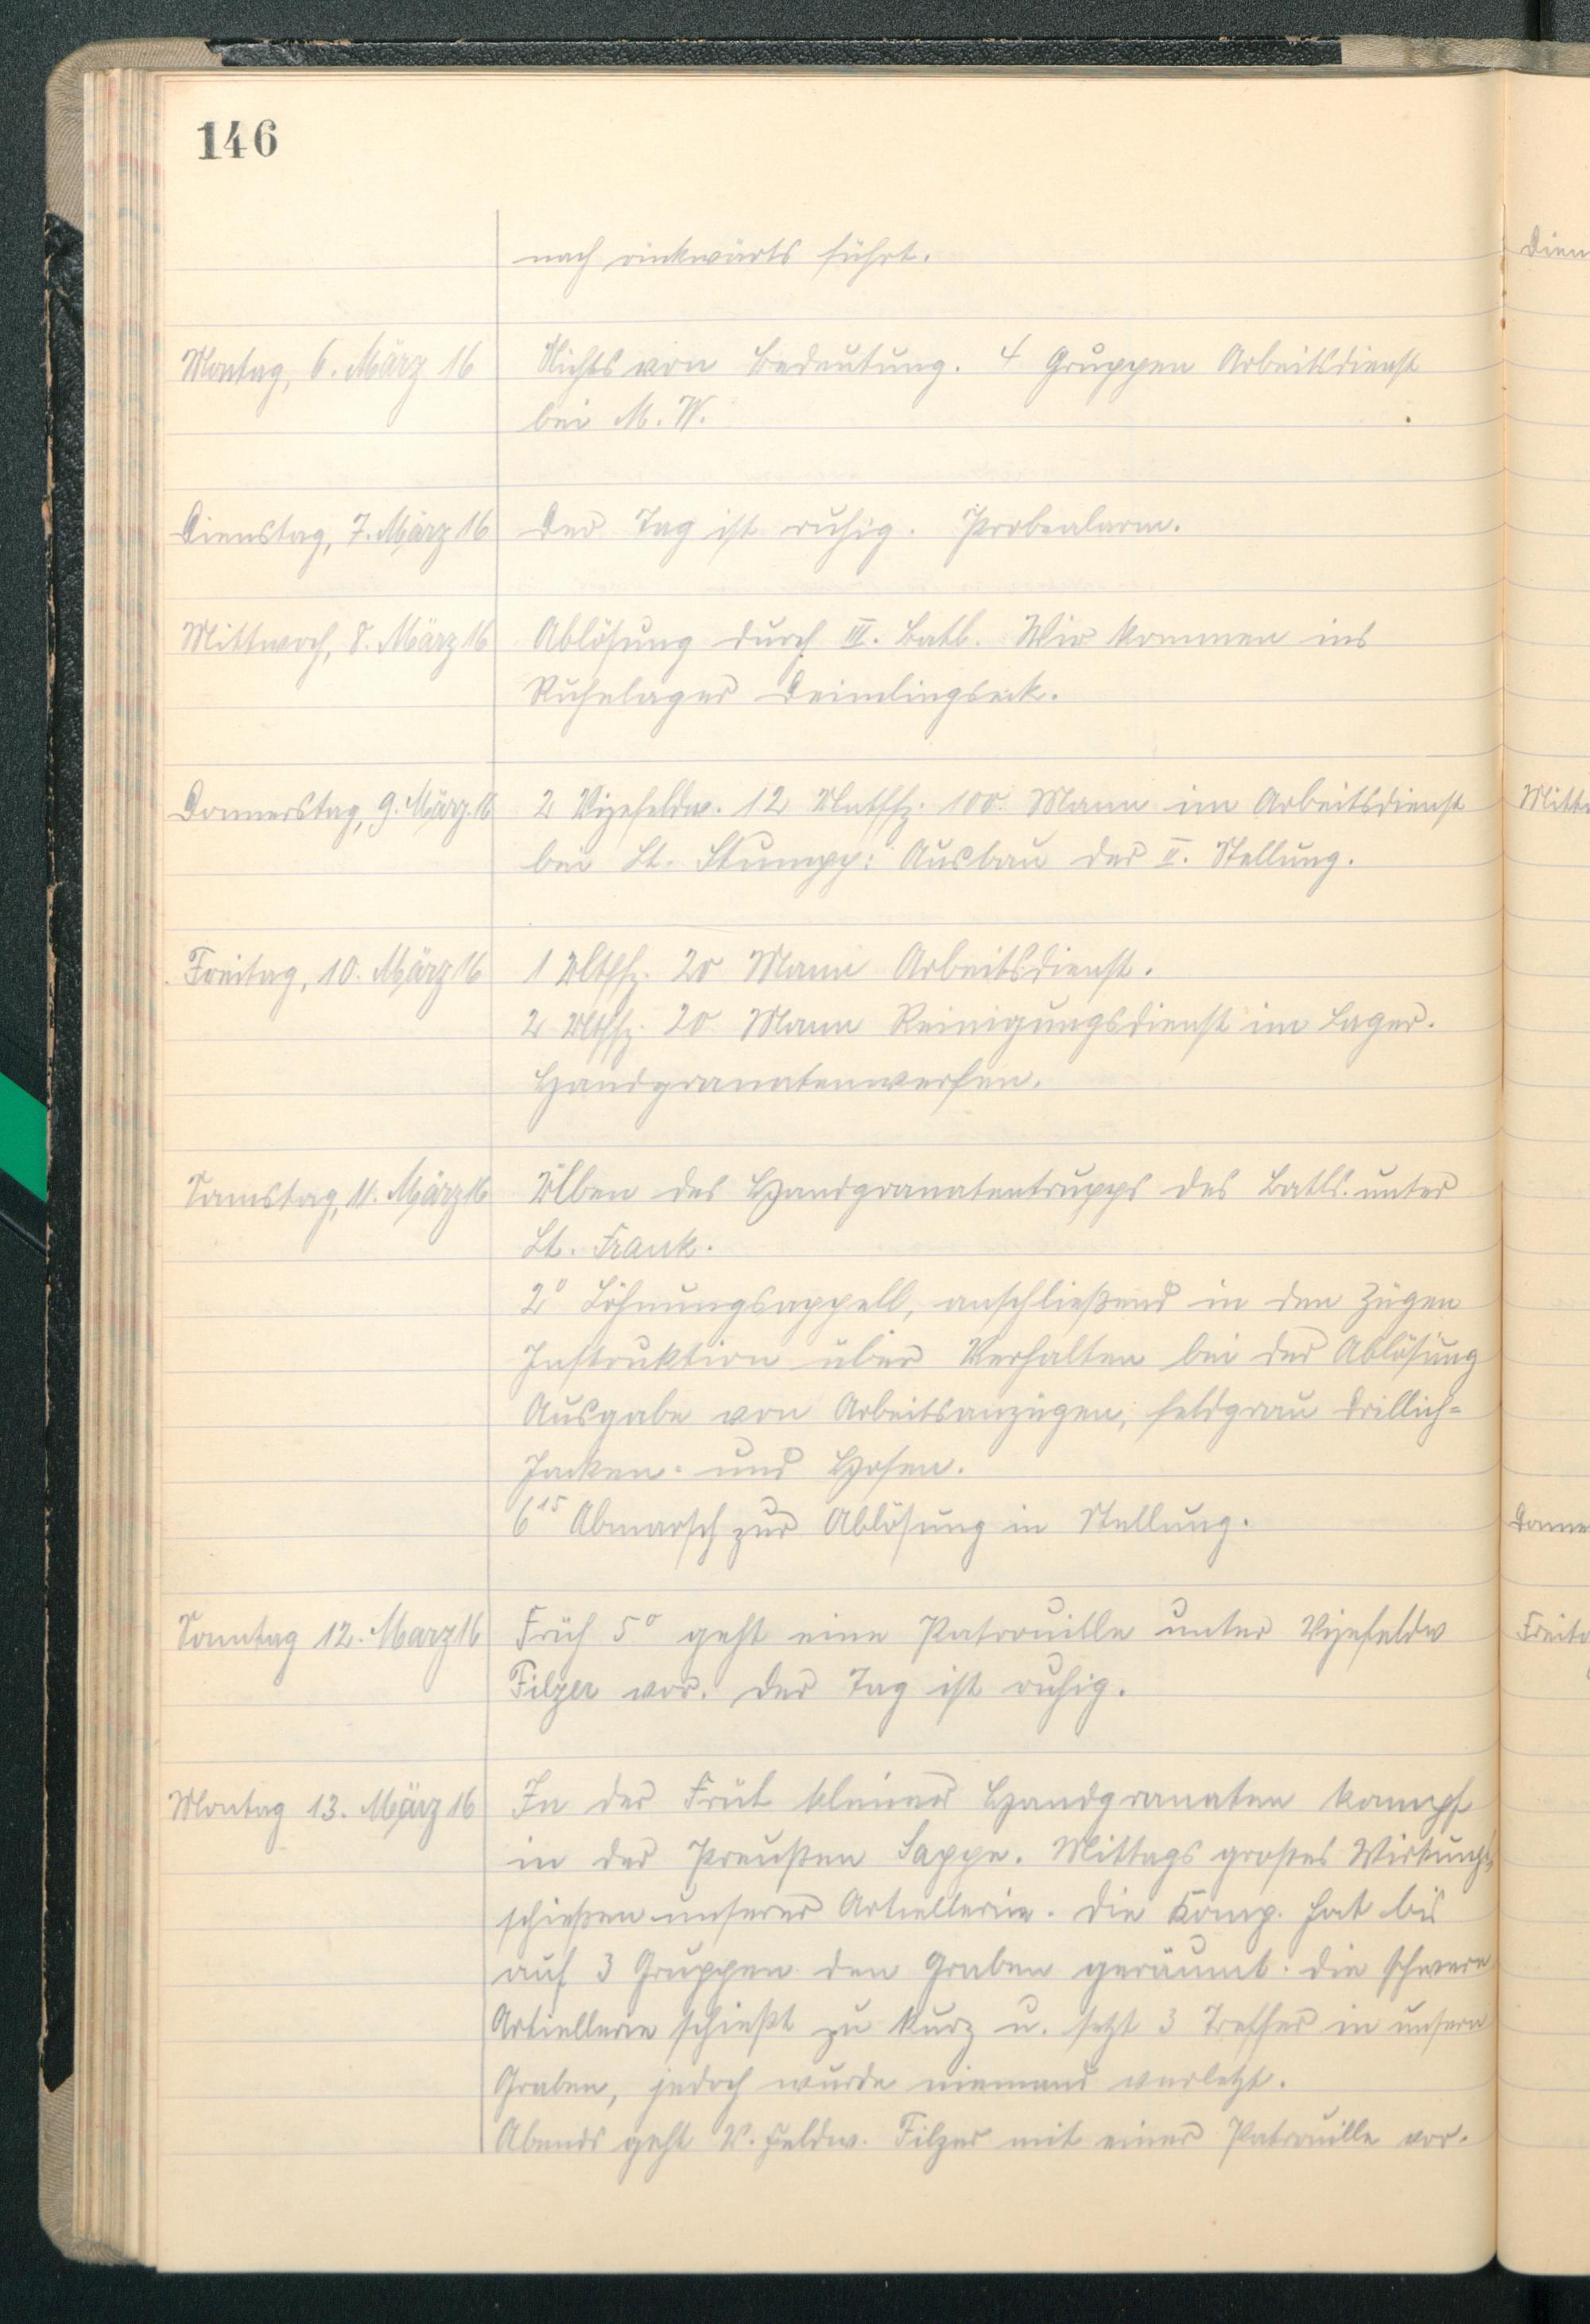 146
nach rückwärts führt.
Montag, 6. März 16 Nichts von Bedeutung. 4 Gruppen Arbeitsdienst
bei M. W.
Dienstag, 7. März 16 Der Tag ist ruhig. Probealarm.
Mittwoch, 8. März 16 Ablösung durch III. Batl. Wir kommen ins
Ruhelager Deimlingseck.
Donnerstag, 9. März. 16 2 Vizefeldw. 12 Untffz. 100 Mann im Arbeitsdienst
bei Lt. Stumpp: Ausbau der II. Stellung.
Freitag, 10. März 16 1 Utffz. 20 Mann Arbeitsdienst.
2 Utffz. 20 Mann Reinigungsdienst im Lager.
Handgranatenwerfen.
Samstag, 11. März 16 Üben des Handgranatentrupps des Batls. unter
Lt. Frank.
2⁰ Löhnungsappell, anschließend in den Zügen
Instruktion über Verhalten bei der Ablösung
Ausgabe von Arbeitsanzügen, feldgrau Drillich-
Jacken- und Hosen.
6¹⁵ Abmarsch zur Ablösung in Stellung.
Sonntag 12. Marz 16 Früh 5⁰ geht eine Patrouille unter Vizefeldw
Filzer vor. Der Tag ist ruhig.
Montag 13. März 16 In der Früh kleiner Handgranaten kampf
in der Preußen Sappe. Mittags großes Wirkungs-
schießen unserer Artiellerie. Die Komp. hat bis
auf 3 Gruppen den Graben geräumt. Die schwere
Artiellerie schießt zu kurz u. setzt 3 Treffer in unsern
Graben, jedoch wurde niemand verletzt.
Abends geht V. Feldw. Filzer mit einer Patrouille vor.
Dien
Mittw
Donne
Freita